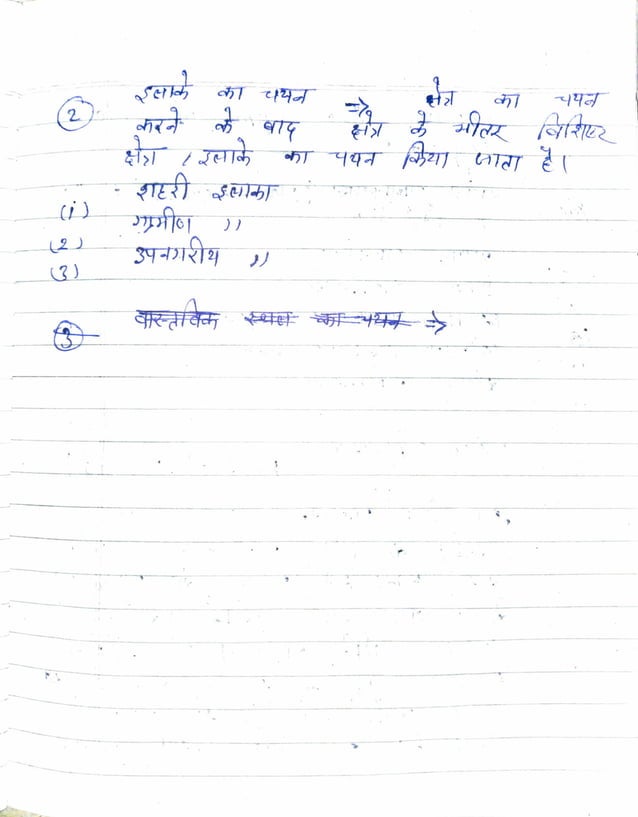 इलाके का चयन => क्षेत्र का चयन
(2) करने के बाद क्षेत्र के भीतर विशिष्ट
क्षेत्र / इलाके का चयन किया जाता है।
(i) शहरी इलाका
(2) ग्रामीण ,,
(3) उपनगरीय ,,
(3) वास्तविक स्थल का चयन =>